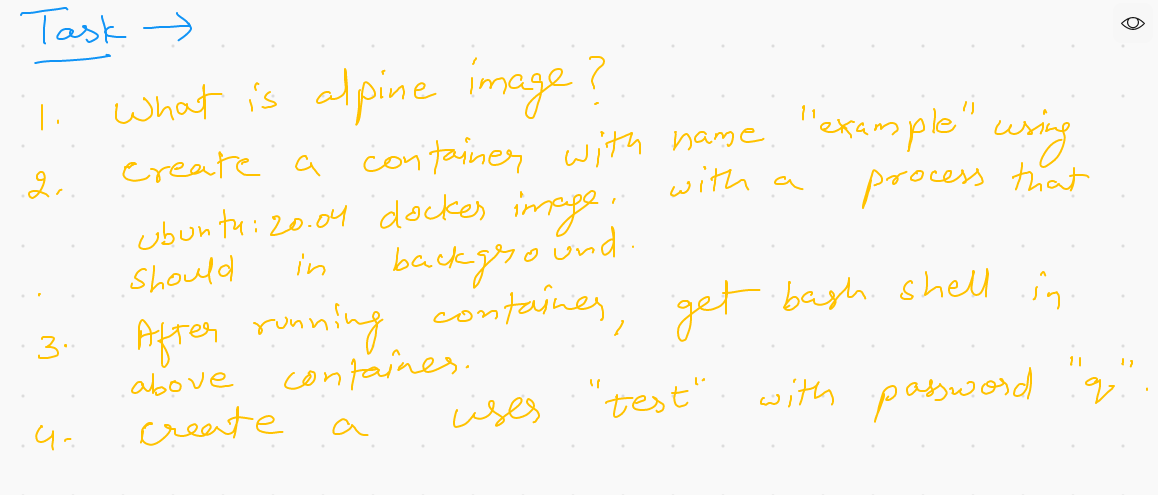 Task →
1. What is alpine image?
2. create a container with name "example" using
ubuntu:20.04 docker image. with a process that
should in background.
3. After running container, get bash shell in
above container.
4. create a user "test" with password "q".